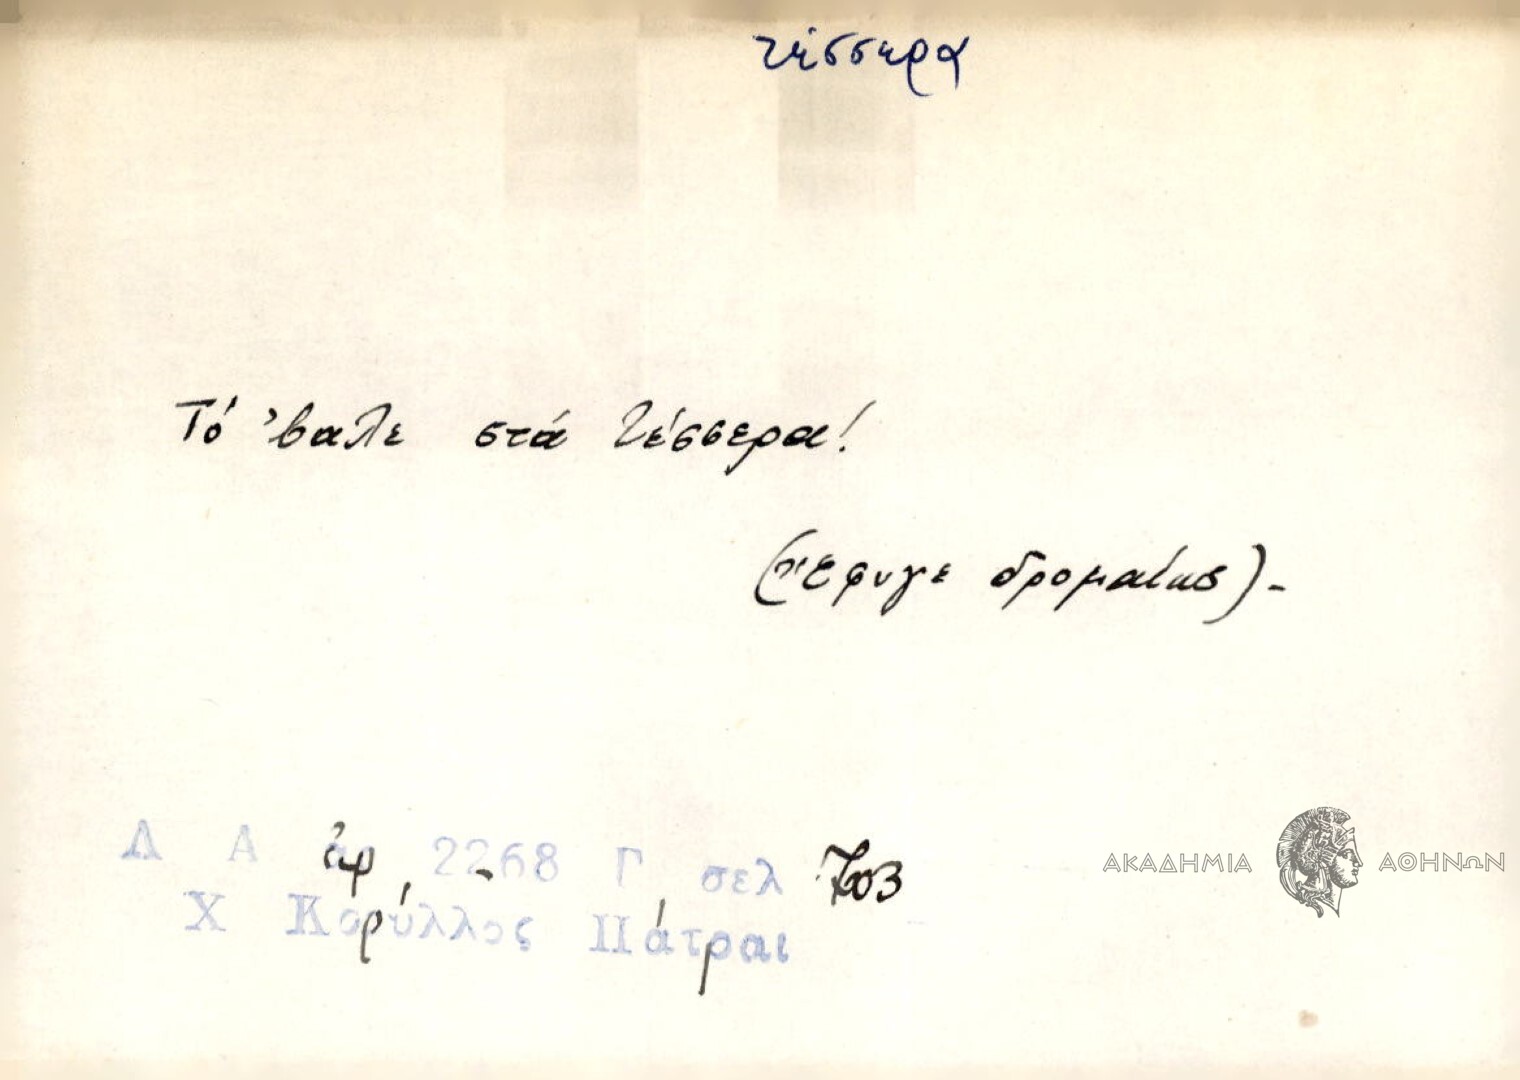 τέσσερα
Τό 'βαλε στά τέσσερα!
(Ἔφυγε δρομαίως).-
Λ Α ἀρ 2268 Γ σελ 703
Χ Κορύλλος Πάτραι
ΑΚΑΔΗΜΙΑ ΑΘΗΝΩΝ